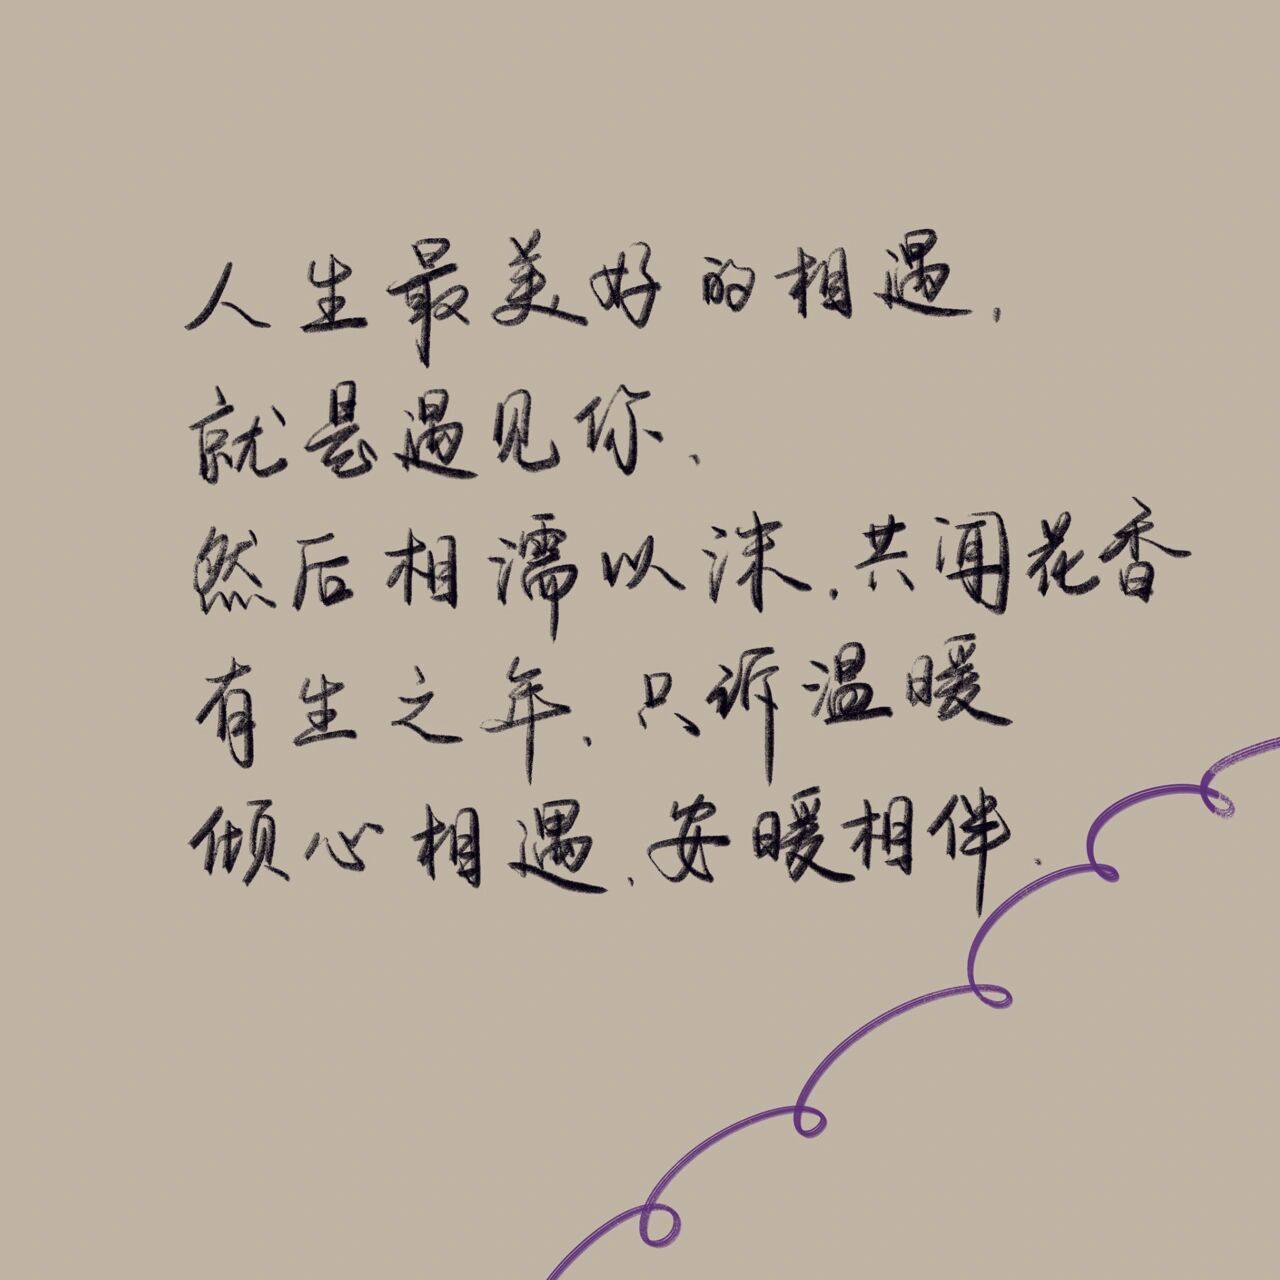 人生最美好的相遇.
就是遇见你.
然后相濡以沫.共闻花香
有生之年.只诉温暖
倾心相遇.安暖相伴.